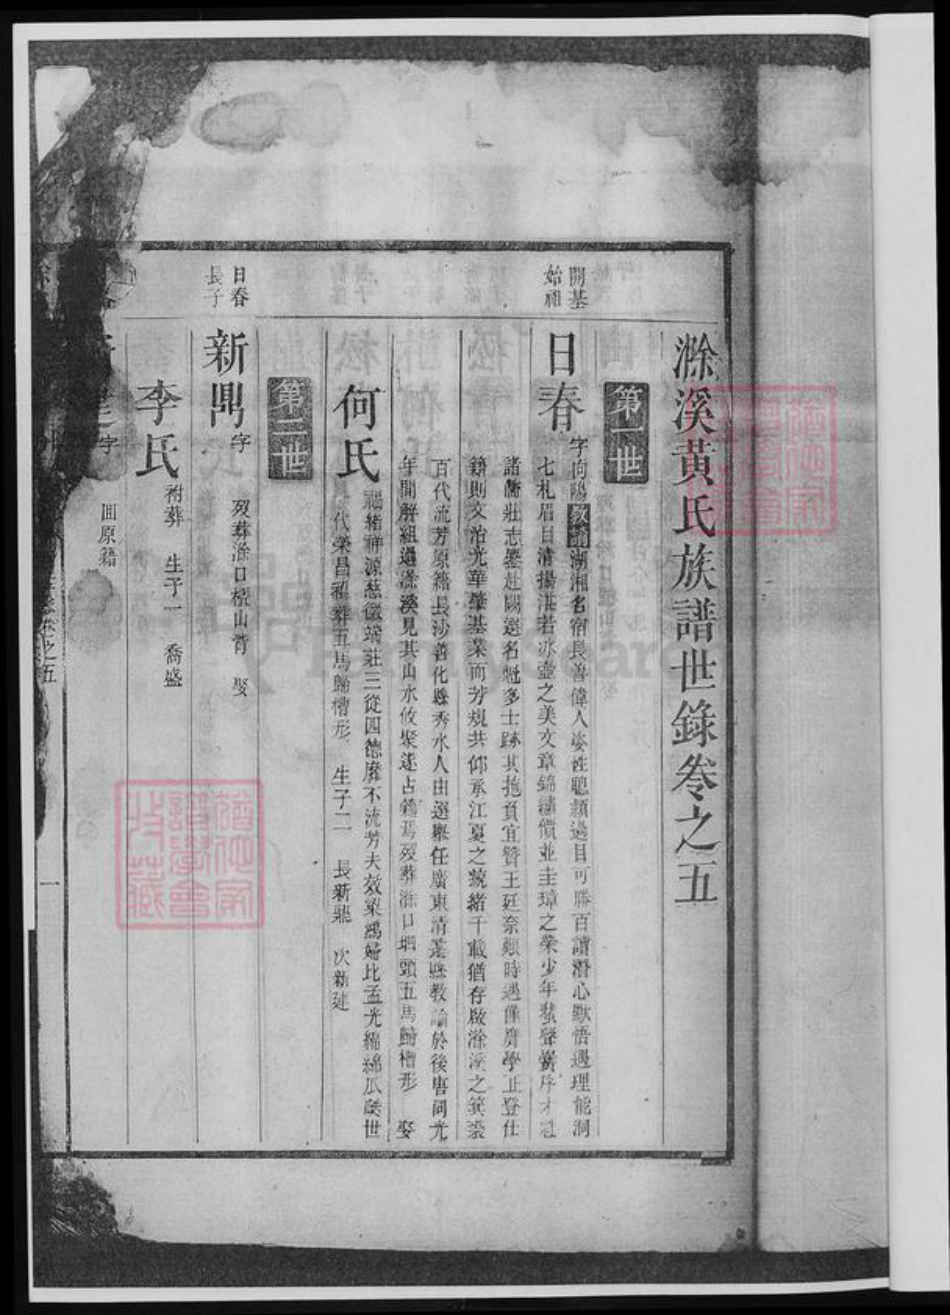 滁溪黃氏族譜世錄卷之五
第一世
開基
始祖
日春
字向陽教諭湖湘名宿長善偉人姿性聰穎過目可勝百讀潛心默悟遇理能洞
七札眉目清揚湛若冰壺之美文章錦繡價並圭璋之榮少年蜚聲黌序才
諸儕壯志鏖赴闕選名魁多士跡其抱負宜贊王廷奈艱時遇僅膺學正登仕
籍則文治光華肇基業而芳規共仰承江夏之統緒千載猶存啟滁溪之箕裘
百代流芳原籍長沙善化縣秀水人由選舉任廣東清遠縣教諭於後唐同光
年間解組過滁溪見其山水攸聚遂占籍焉歿葬滁口垇頭五馬歸槽形 娶
何氏
福緒祥源慈徽端莊三從四德靡不流芳夫效梁鴻婦比孟光綿綿瓜瓞世
代榮昌歿葬五馬歸槽形 生子二 長新鼎 次新建
第二世
日春
長子
新鼎
字 歿葬滁口 山背 娶
李氏
祔葬 生子一 喬盛
字 回原籍
卷之五
一
譜學會
猶他家
譜學會
收藏
FamilySearch